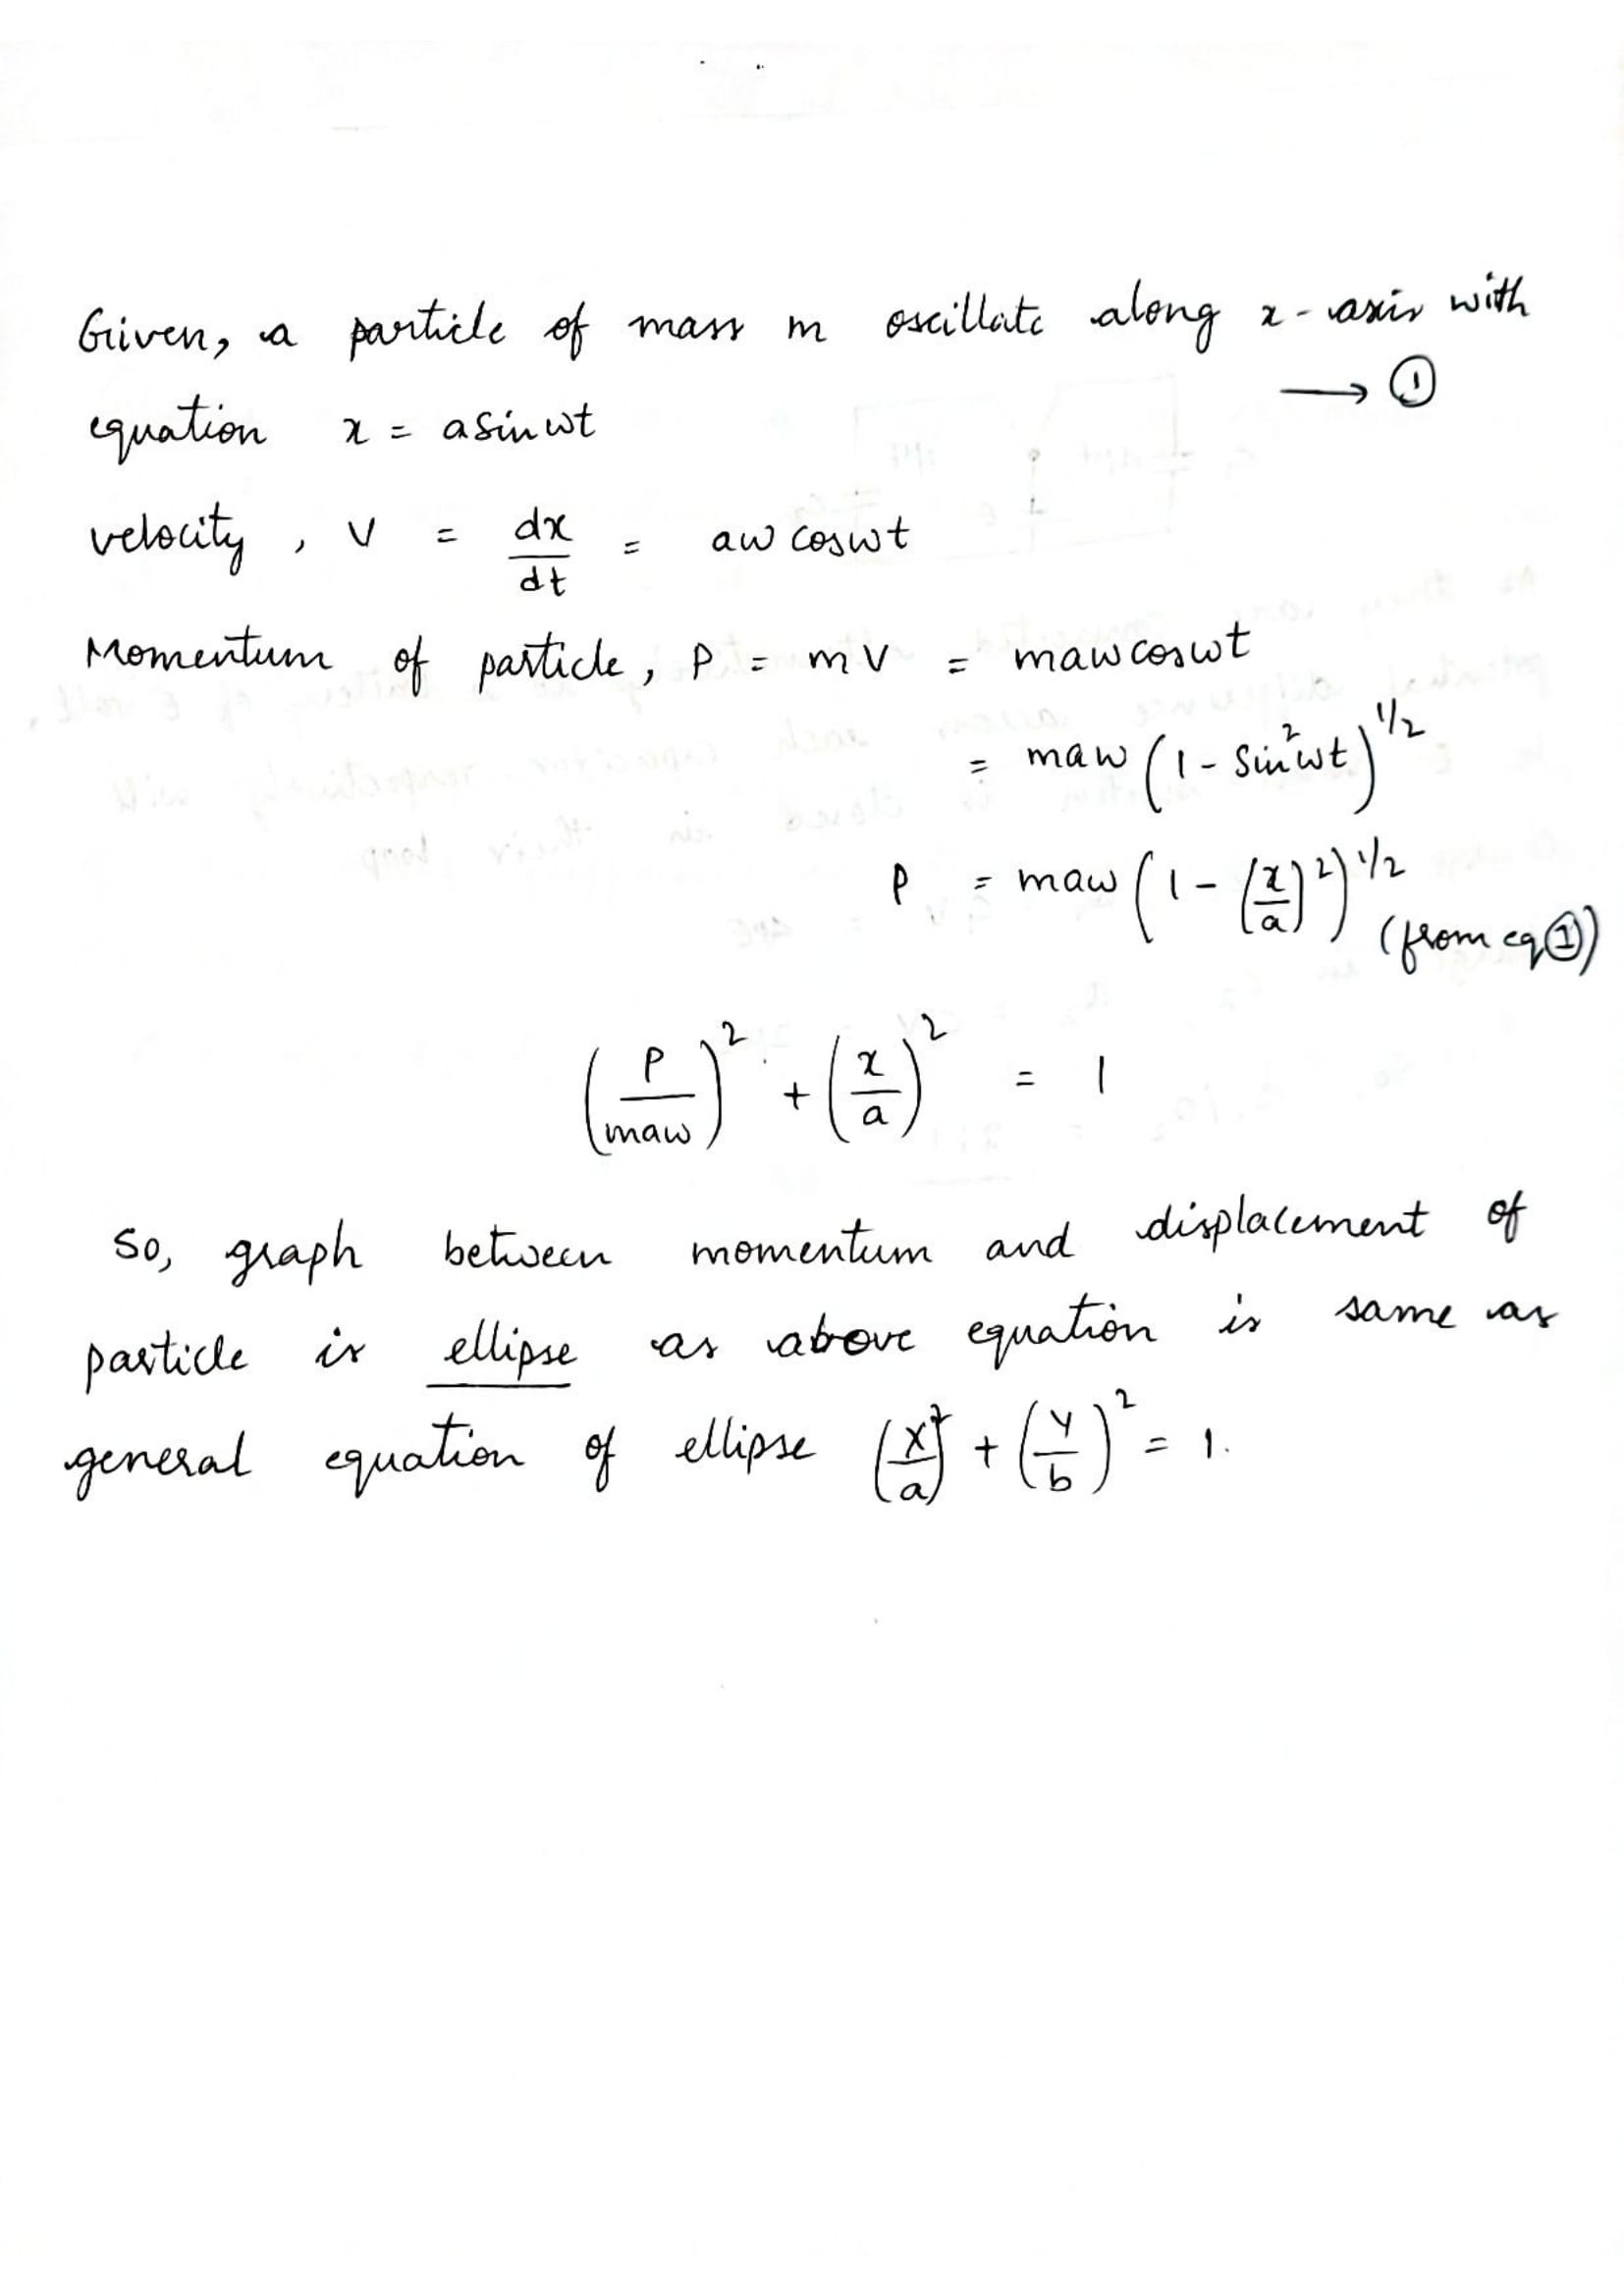 Given, a particle of mass m oscillate along x-axis with
equation x = a sin ωt ⟶ ①
velocity, V = dx/dt = aω cos ωt
Momentum of particle, P = mV = maω cos ωt
= maω (1 - sin²ωt)^1/2
P = maω (1 - (x/a)²)^1/2 (from eq ①)
(P/maω)² + (x/a)² = 1
So, graph between momentum and displacement of
particle is ellipse as above equation is same as
general equation of ellipse (x/a)² + (y/b)² = 1.